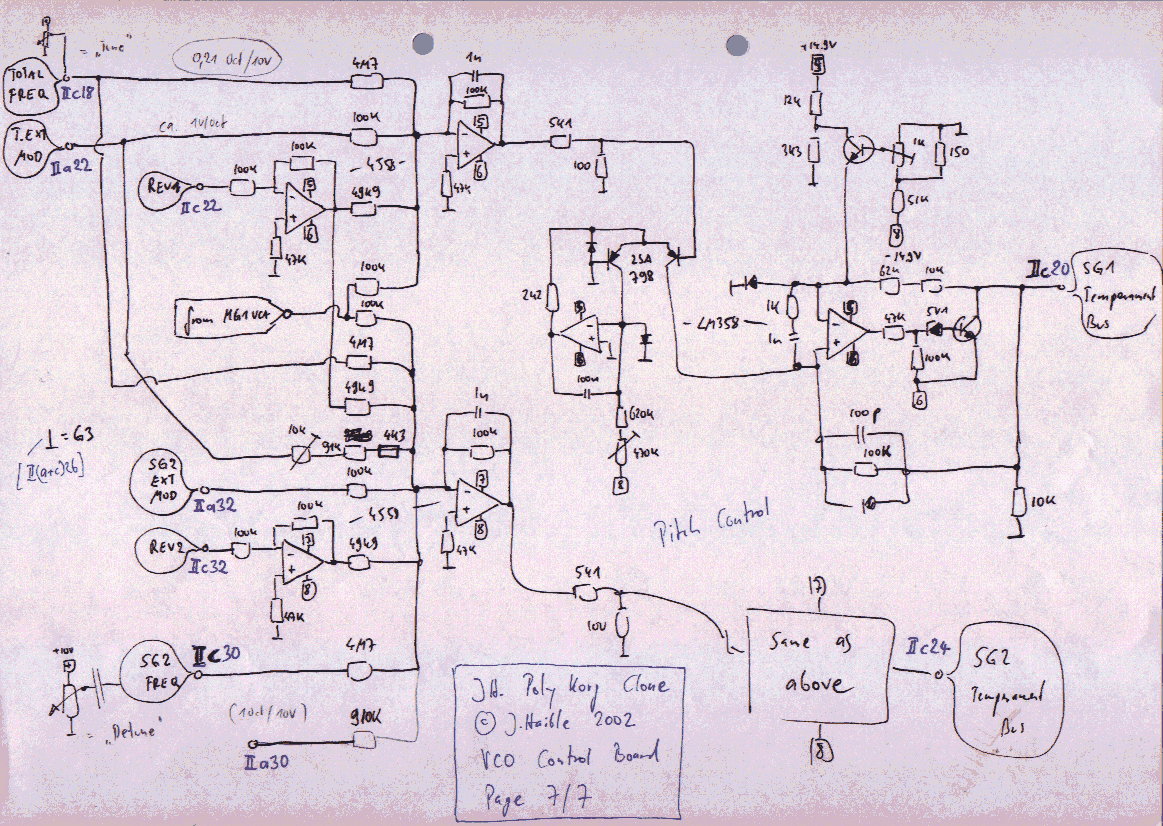 = "Tune"
TOTAL
FREQ
IIc18
0,21 Oct/10V
4M7
1n
100K
T.EXT
MOD
IIa22
ca. 1V/oct
100K
15
16
47K
REV1
IIc22
100K
100K
15
16
47K
-4558-
49K9
5k1
100
+14.9V
5
12K
3K3
1K
150
51K
8
-14.9V
2SA
798
2k2
5
6
100n
620K
470K
8
from MG1 VCA
100K
100K
4M7
49K9
10K
91K
4K3
1K
1n
-LM358-
5
6
62K
10K
47K
5V1
100K
6
IIc20
SG1
Temperament
Bus
100p
100K
10K
⊥ = G3
[II(a+c)26]
SG2
EXT
MOD
IIa32
100K
1n
100K
7
8
47K
-4558-
REV2
IIc32
100K
100K
17
8
47K
49K9
Pitch Control
5k1
100
17
Same as
above
18
IIc24
SG2
Temperament
Bus
+10V
= "Detune"
SG2
FREQ
IIc30
4M7
(1Oct/10V)
910K
IIa30
JH. Poly Korg Clone
© J.Haible 2002
VCO Control Board
Page 7/7